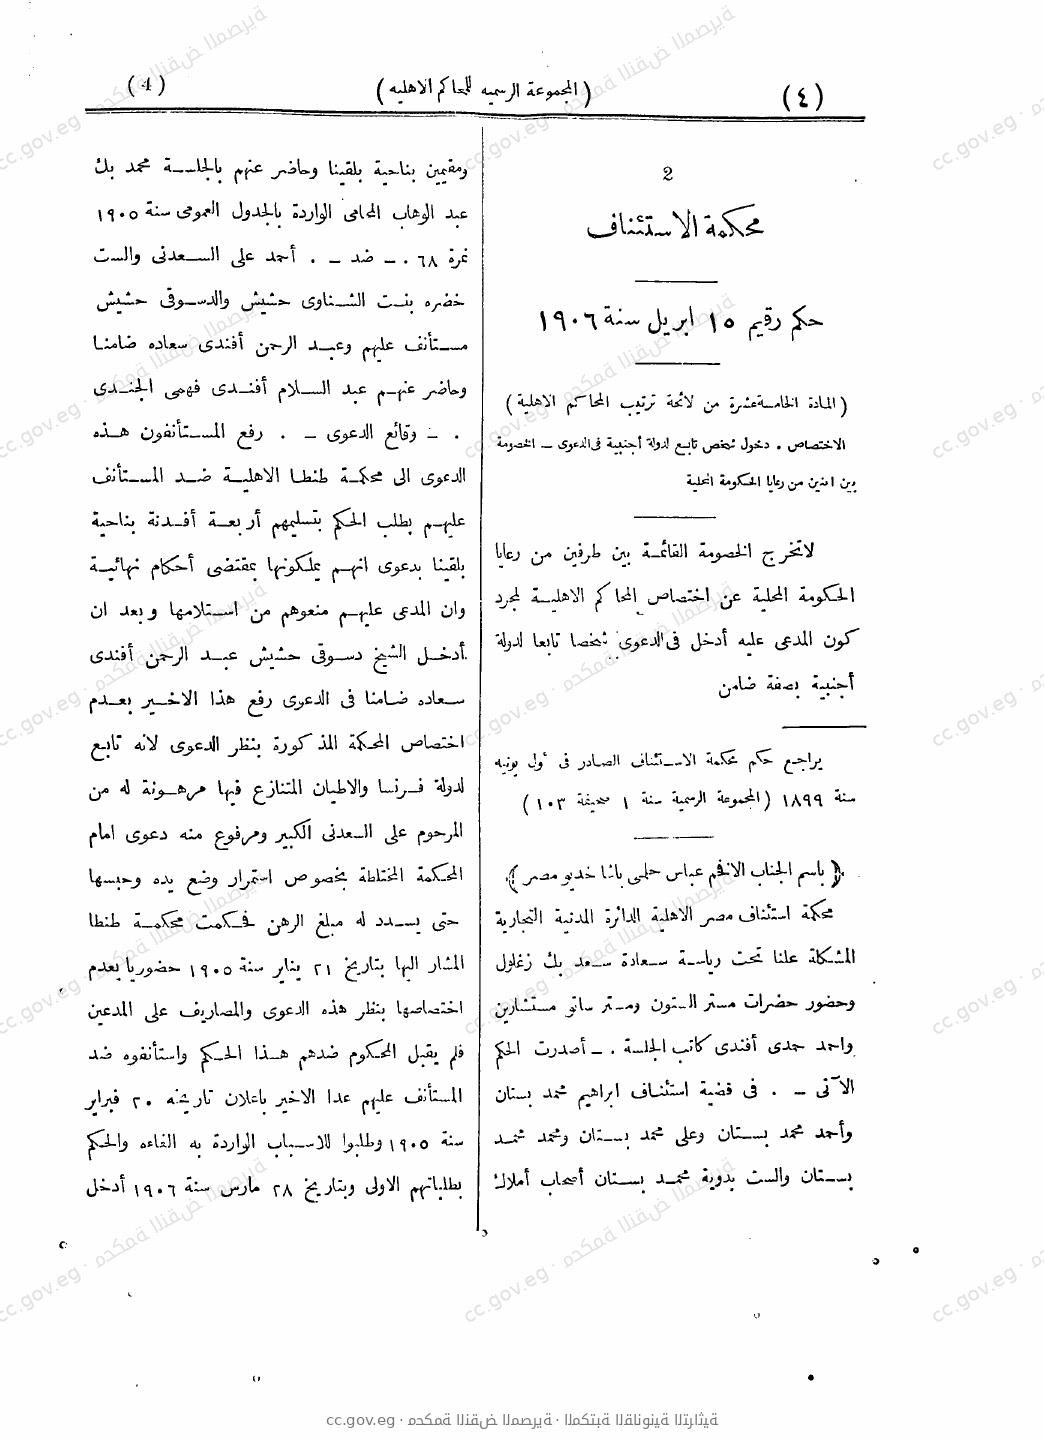 (٤)
(المجموعة الرسميه للمحاكم الاهليه)
(4)
2
محكمة الاستئناف
حكم رقيم ١٥ ابريل سنة ١٩٠٦
(المادة الخامسة عشرة من لائحة ترتيب المحاكم الاهلية)
الاختصاص . دخول شخص تابع لدولة أجنبية فى الدعوى ــ الخصومة
بين اثنين من رعايا الحكومة المحلية
لا تخرج الخصومة القائمة بين طرفين من رعايا
الحكومة المحلية عن اختصاص المحاكم الاهلية لمجرد
كون المدعى عليه أدخل فى الدعوى شخصا تابعا لدولة
أجنبية بصفة ضامن
يراجع حكم محكمة الاستئناف الصادر فى أول يونيه
سنة ١٨٩٩ (المجموعة الرسمية سنة ١ صحيفة ١٠٣)
﴿ باسم الجناب الافخم عباس حلمى باشا خديو مصر ﴾
محكمة استئناف مصر الاهلية الدائرة المدنية التجارية
المشكلة علنا تحت رياسة سعادة سعد بك زغلول
وحضور حضرات مستر الستون ومستر ساتو مستشارين
واحمد حمدى أفندى كاتب الجلسة . ــ أصدرت الحكم
الآتى ــ . فى قضية استئناف ابراهيم محمد بستان
وأحمد محمد بستان وعلى محمد بستان ومحمد محمد
بستان والست بدوية محمد بستان أصحاب أملاك
ومقيمين بناحية بلقينا وحاضر عنهم بالجلسة محمد بك
عبد الوهاب المحامى الواردة بالجدول العمومى سنة ١٩٠٥
نمرة ٦٨ . ــ ضد ــ . أحمد على السعدنى والست
خضره بنت الشناوى حشيش والدسوقى حشيش
مستأنف عليهم وعبد الرحمن أفندى سعاده ضامنا
وحاضر عنهم عبد السلام أفندى فهمى الجندى
. ــ وقائع الدعوى ــ . رفع المستأنفون هذه
الدعوى الى محكمة طنطا الاهلية ضد المستأنف
عليهم بطلب الحكم بتسليمهم أربعة أفدنة بناحية
بلقينا بدعوى انهم يملكونها بمقتضى أحكام نهائية
وان المدعى عليهم منعوهم من استلامها وبعد ان
أدخل الشيخ دسوقى حشيش عبد الرحمن أفندى
سعاده ضامنا فى الدعوى رفع هذا الاخير بعدم
اختصاص المحكمة المذكورة بنظر الدعوى لانه تابع
لدولة فرنسا والاطيان المتنازع فيها مرهونة له من
المرحوم على السعدنى الكبير ومرفوع منه دعوى امام
المحكمة المختلطة بخصوص استمرار وضع يده وحبسها
حتى يسدد له مبلغ الرهن فحكمت محكمة طنطا
المشار اليها بتاريخ ٢١ يناير سنة ١٩٠٥ حضوريا بعدم
اختصاصها بنظر هذه الدعوى والمصاريف على المدعين
فلم يقبل المحكوم ضدهم هذا الحكم واستأنفوه ضد
المستأنف عليهم عدا الاخير باعلان تاريخه ٢٠ فبراير
سنة ١٩٠٥ وطلبوا للاسباب الواردة به الغاءه والحكم
بطلباتهم الاولى وبتاريخ ٢٨ مارس سنة ١٩٠٦ أدخل
cc.gov.eg · محكمة النقض المصرية · المكتبة القانونية التراثية